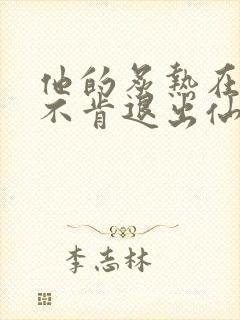 他的炙熱在
不肯退出仙
李志林